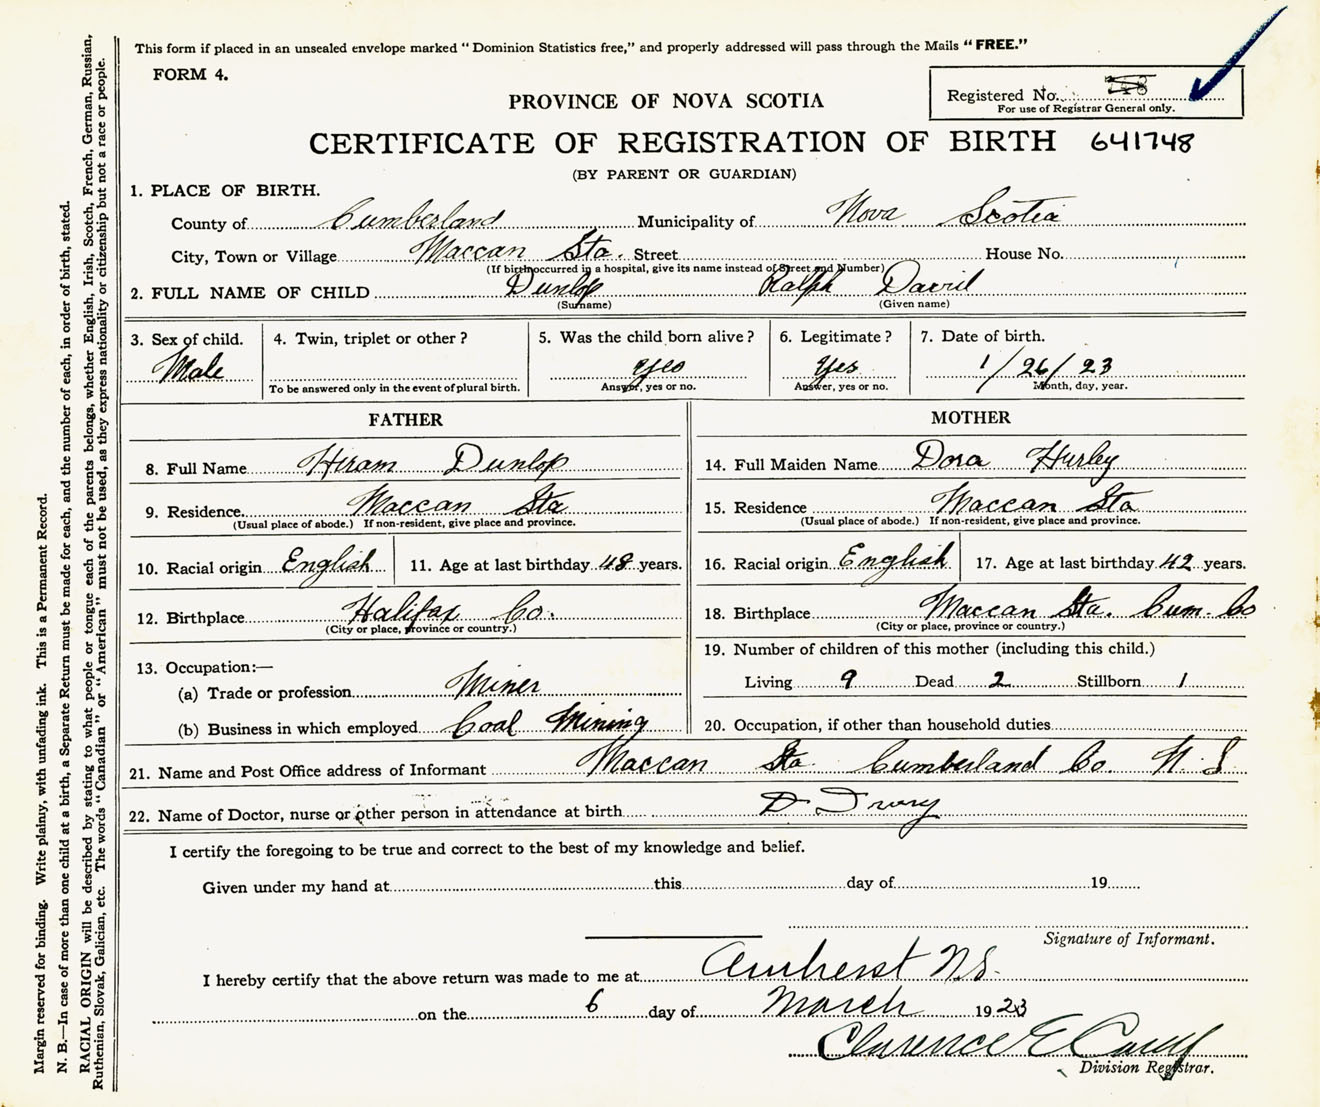 This form if placed in an unsealed envelope marked “ Dominion Statistics free,” and properly addressed will pass through the Mails “ FREE.”
FORM 4.
Registered No.
For use of Registrar General only.
PROVINCE OF NOVA SCOTIA
CERTIFICATE OF REGISTRATION OF BIRTH 641748
(BY PARENT OR GUARDIAN)
1. PLACE OF BIRTH.
County of Cumberland Municipality of Nova Scotia
City, Town or Village Maccan Sta. Street House No.
(If birth occurred in a hospital, give its name instead of Street and Number)
2. FULL NAME OF CHILD Dunlop Ralph David
(Surname) (Given name)
3. Sex of child. 4. Twin, triplet or other ? 5. Was the child born alive ? 6. Legitimate ? 7. Date of birth.
Male yes Yes 1/26/23
To be answered only in the event of plural birth. Answer, yes or no. Answer, yes or no. Month, day, year.
FATHER MOTHER
8. Full Name Hiram Dunlop
14. Full Maiden Name Dora Hurley
9. Residence. Maccan Sta
(Usual place of abode.) If non-resident, give place and province.
15. Residence Maccan Sta
(Usual place of abode.) If non-resident, give place and province.
10. Racial origin English 11. Age at last birthday 48 years.
16. Racial origin English 17. Age at last birthday 42 years.
12. Birthplace Halifax Co.
(City or place, province or country.)
18. Birthplace Maccan Sta. Cum. Co
(City or place, province or country.)
13. Occupation:—
(a) Trade or profession Miner
(b) Business in which employed Coal Mining
19. Number of children of this mother (including this child.)
Living 9 Dead 2 Stillborn 1
20. Occupation, if other than household duties
21. Name and Post Office address of Informant Maccan Sta Cumberland Co. N. S.
22. Name of Doctor, nurse or other person in attendance at birth D
I certify the foregoing to be true and correct to the best of my knowledge and belief.
Given under my hand at this day of 19
Signature of Informant.
I hereby certify that the above return was made to me at Amherst N.S.
on the 6 day of March 1923
Clarence E
Division Registrar.
Margin reserved for binding. Write plainly, with unfading ink. This is a Permanent Record.
N. B.—In case of more than one child at a birth, a Separate Return must be made for each, and the number of each, in order of birth, stated.
RACIAL ORIGIN will be described by stating to what people or tongue each of the parents belongs, whether English, Irish, Scotch, French, German, Russian,
Ruthenian, Slovak, Galician, etc. The words “ Canadian ” or “ American ” must not be used, as they express nationality or citizenship but not a race or people.